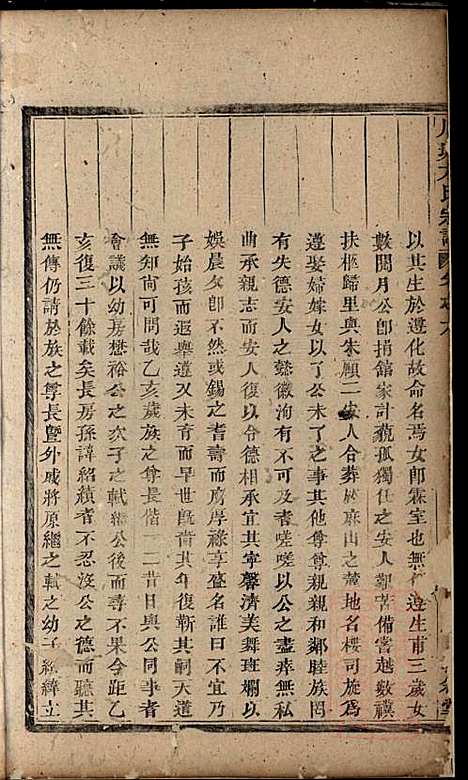 以其生於遵化故命名焉女卽霖室也無何遵生甫三歲女
數閱月公卽捐館家計藐孤獨任之安人艱苦備嘗越數禩
扶柩歸里與朱顧二安人合葬於麻山之麓地名樓司旋爲
遵娶婦嫁女以了公未了之事其他尊尊親親和鄰睦族罔
有失德安人之懿徽洵有不可及者嗟嗟以公之盡瘁無私
曲承親志而安人復以令德相承宜其寧馨濟美舞班斕以
娛晨夕卽不然或錫之耆壽而膺厚祿享盛名誰曰不宜乃
子始孩而遐舉遵又未育而早世旣嗇其年復靳其嗣天道
無知尙可問哉乙亥歲族之尊長偕一二昔日與公同事者
會議以幼房懋裕公之次子之軾繼公後而尋不果今距乙
亥復三十餘載矣長房孫諱紹績者不忍沒公之德而聽其
無傳仍請於族之尊長曁外戚將原繼之軾之幼子 緯立